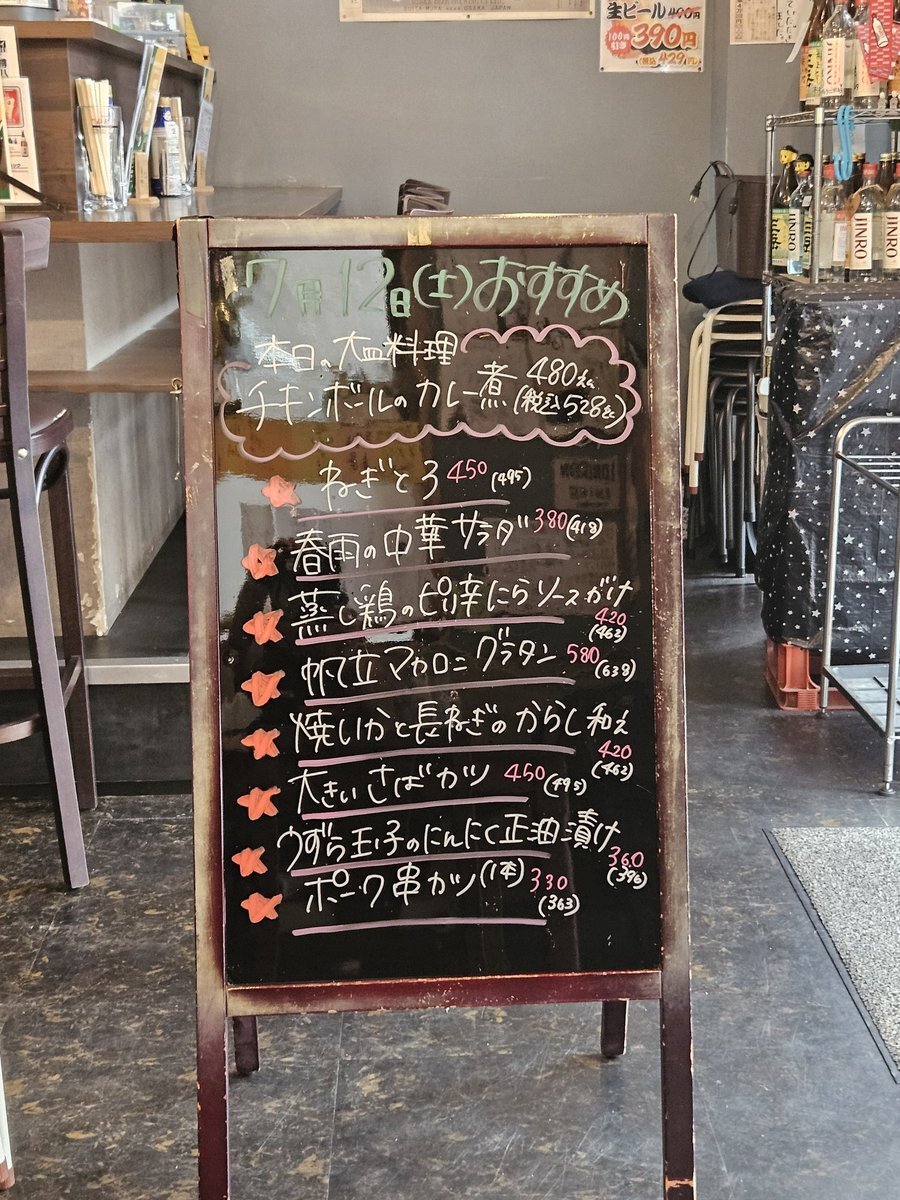 生ビール 490円
100円引き 390円
(税込429円)
7月12日(土)おすすめ
本日の大皿料理
チキンボールのカレー煮 480えん
(税込528えん)
ねぎとろ 450 (495)
春雨の中華サラダ 380 (418)
蒸し鶏のピリ辛にらソースがけ
420
(462)
帆立マカロニグラタン 580
(638)
焼いかと長ねぎのからし和え
420
(462)
大きいさばカツ 450 (495)
うずら玉子のにんにく正油漬け
360
(396)
ポーク串カツ(1本) 330
(363)
JINRO
JINRO
JINRO